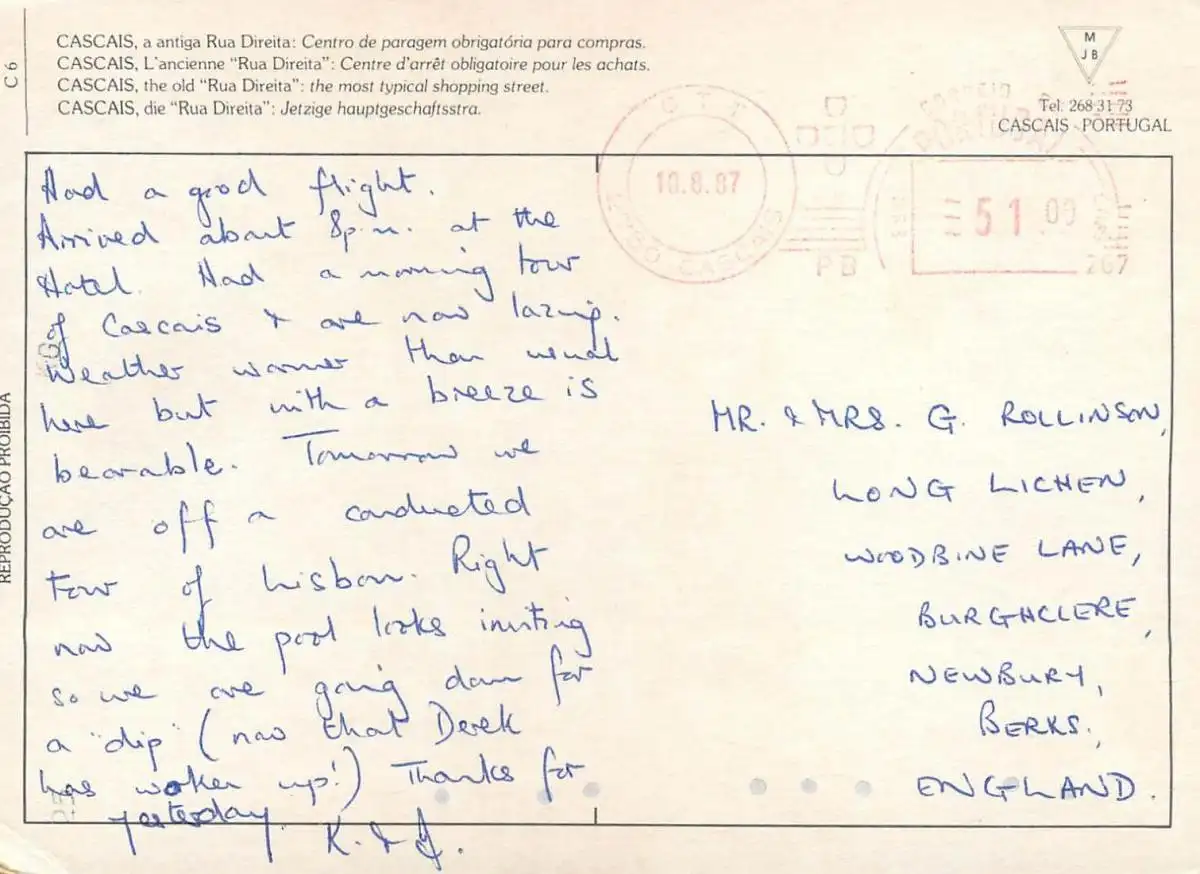 CASCAIS, a antiga Rua Direita: Centro de paragem obrigatória para compras.
CASCAIS, L'ancienne "Rua Direita": Centre d'arrêt obligatoire pour les achats.
CASCAIS, the old "Rua Direita": the most typical shopping street.
CASCAIS, die "Rua Direita": Jetzige hauptgeschaftsstra.
C 6
M
JB
Tel. 268 31 73
CASCAIS - PORTUGAL
REPRODUÇÃO PROIBIDA
CTT
10.8.87
CASCAIS
PB
CORREIO
PORTUGAL
51.00
267
Had a good flight.
Arrived about 8p.m. at the
Hotel. Had a morning tour
of Cascais & are now lazing.
Weather warmer than usual
here but with a breeze is
bearable. Tomorrow we
are off a conducted
tour of Lisbon. Right
now the pool looks inviting
so we are going down for
a "dip" (now that Derek
has woken up!) Thanks for
yesterday.
K. & J.
MR. & MRS. G. ROLLINSON,
LONG LICHEN,
WOODBINE LANE,
BURGHCLERE,
NEWBURY,
BERKS.,
ENGLAND.